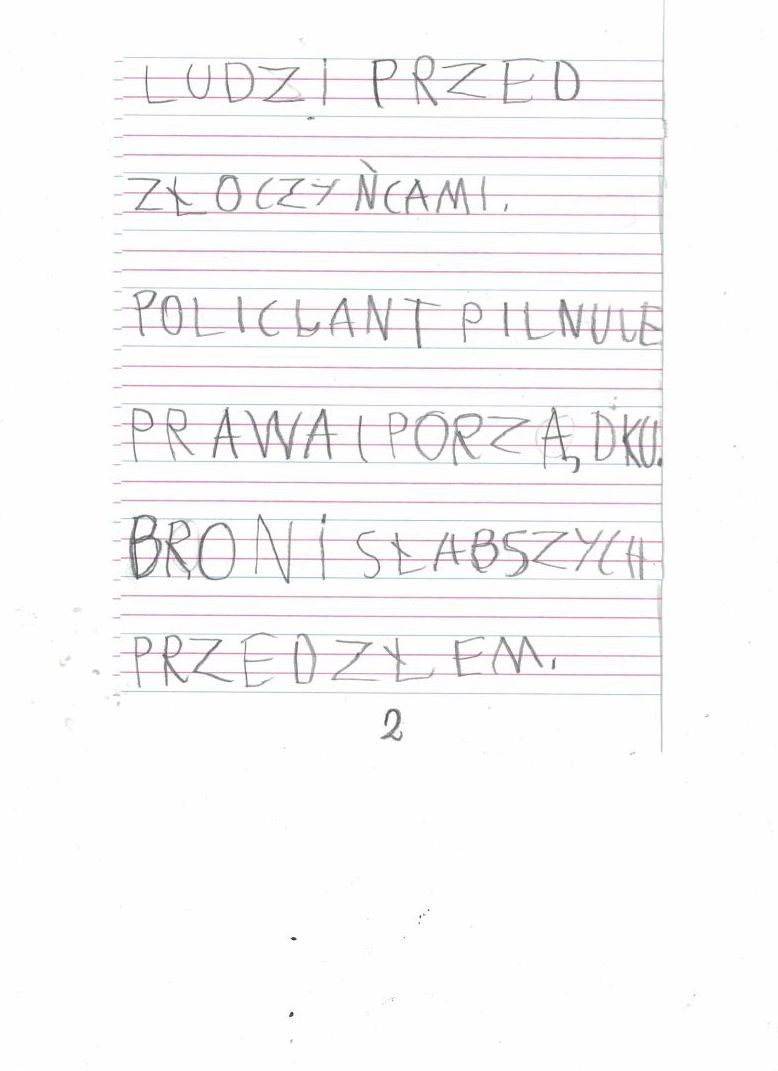 LUDZI PRZED
ZŁOCZYŃCAMI.
POLICJANT PILNUJE
PRAWA I PORZĄDKU.
BRONI SŁABSZYCH
PRZED ZŁEM.
2